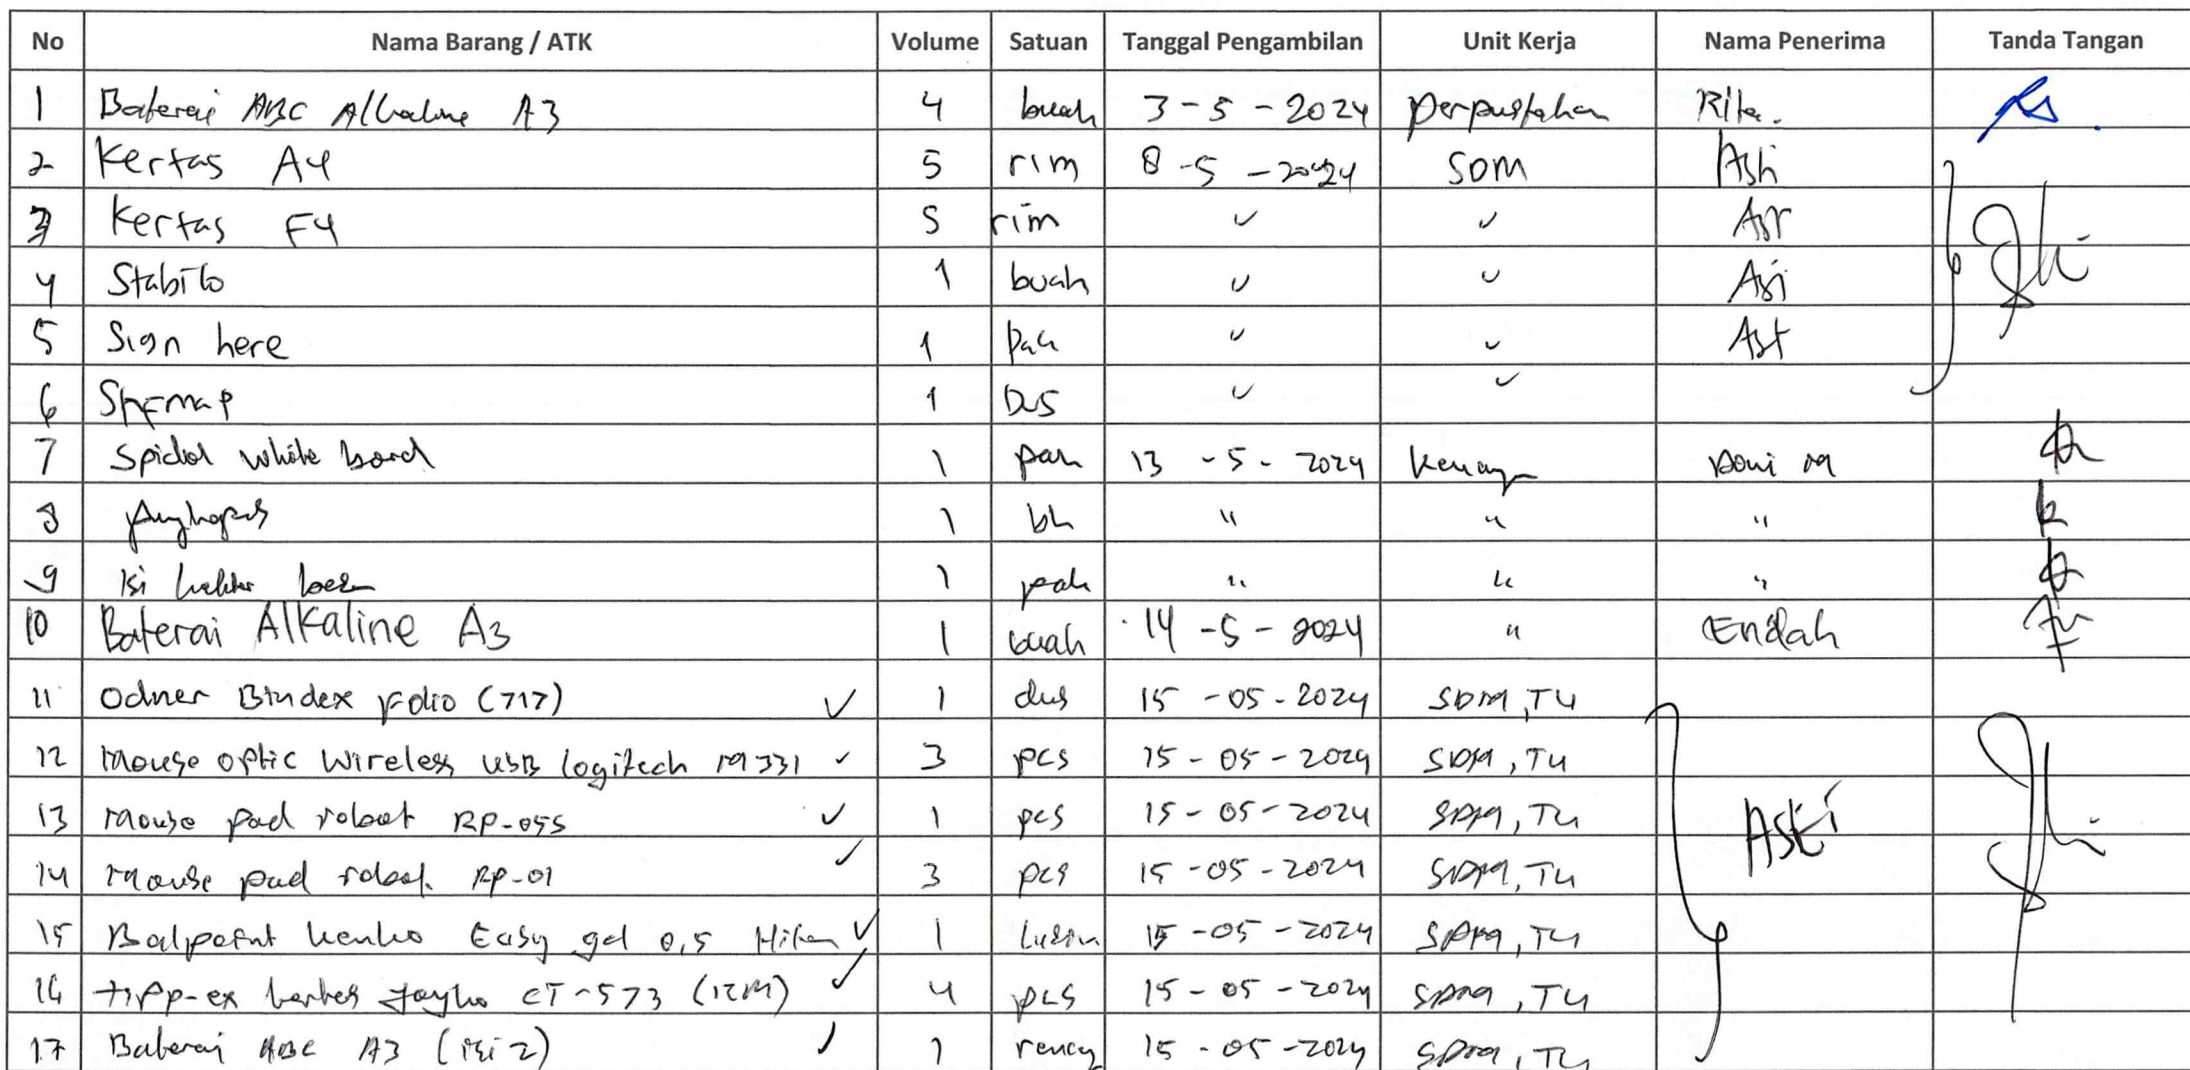 No Nama Barang / ATK Volume Satuan Tanggal Pengambilan Unit Kerja Nama Penerima Tanda Tangan
1 Baterai ABC Alkaline A3 4 buah 3-5-2024 perpustakan Rita.
2 Kertas A4 5 rim 8-5-2024 SDM Asti
3 Kertas F4 5 rim ✓ ✓
4 Stabilo 1 buah ✓ ✓
5 Sign here 1 pak ✓ ✓ Ast
6 1 Dus ✓ ✓
7 Spidol white board 1 pak 13-5-2024
8 penghapus 1 bh " " "
9 Isi 1 pak " " "
10 Baterai Alkaline A3 1 buah 14-5-2024 " Endah
11 Odner Bindex Folio (717) ✓ 1 dus 15-05-2024 SDM, TU
12 Mouse optic wireless USB logitech M331 ✓ 3 pcs 15-05-2024 SDM, TU
13 Mouse pad robot RP-05S ✓ 1 pcs 15-05-2024 SDM, TU Asti
14 Mouse pad robot. RP-01 ✓ 3 pcs 15-05-2024 SDM, TU
15 Balpoint kenko Easy gel 0,5 Hitam ✓ 1 Lusin 15-05-2024 SDM, TU
16 tipp-ex kertas Joyko CT-573 (12M) ✓ 4 pcs 15-05-2024 SDM, TU
17 Baterai ABC A3 (isi 2) ✓ 1 15-05-2024 SDM, TU